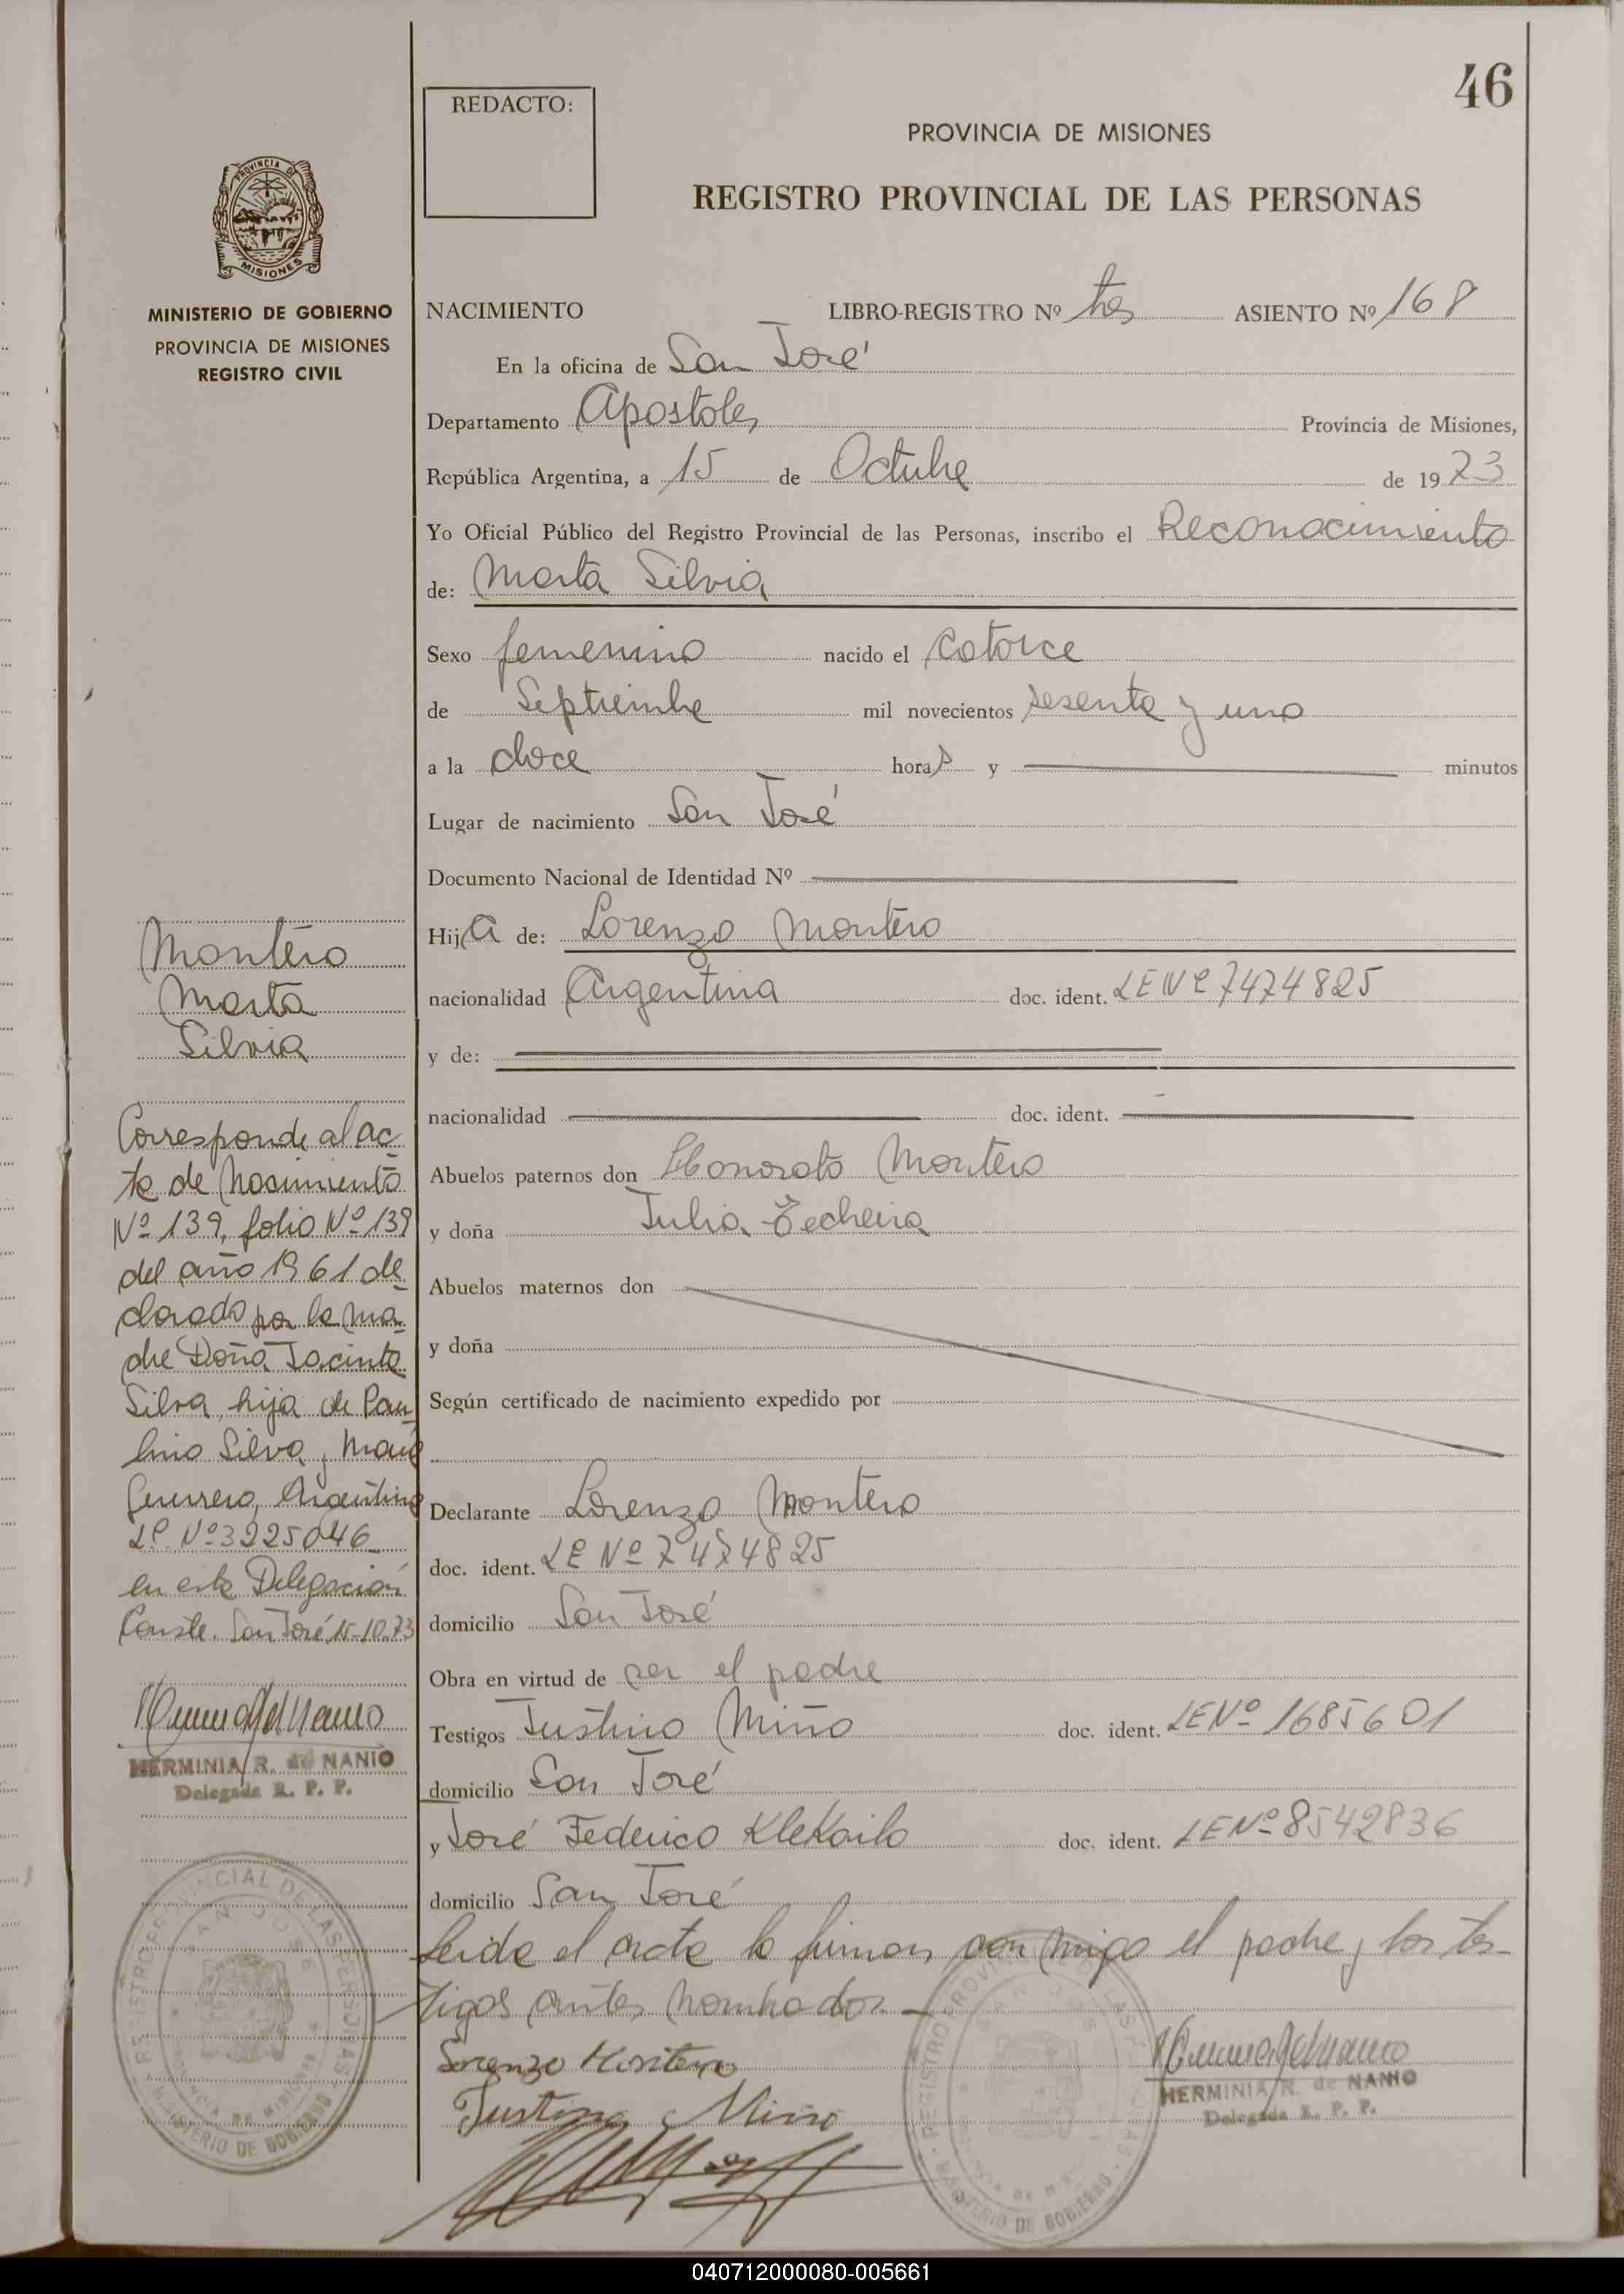 46
REDACTO:
PROVINCIA DE MISIONES
REGISTRO PROVINCIAL DE LAS PERSONAS
PROVINCIA DE
MISIONES
MINISTERIO DE GOBIERNO
PROVINCIA DE MISIONES
REGISTRO CIVIL
NACIMIENTO LIBRO-REGISTRO Nº tres ASIENTO Nº 168
En la oficina de San José
Departamento Apostoles Provincia de Misiones,
República Argentina, a 15 de Octubre de 1973
Yo Oficial Público del Registro Provincial de las Personas, inscribo el Reconocimiento
de: Marta Silvia
Sexo femenino nacido el catorce
de Septiembre mil novecientos sesenta y uno
a la doce horas y minutos
Lugar de nacimiento San José
Documento Nacional de Identidad Nº
Hija de: Lorenzo Montero
nacionalidad Argentina doc. ident. LE Nº 7474825
y de:
nacionalidad doc. ident.
Abuelos paternos don Honorato Montero
y doña Julia Techeira
Abuelos maternos don
y doña
Según certificado de nacimiento expedido por
Declarante Lorenzo Montero
doc. ident. LE Nº 7474825
domicilio San José
Obra en virtud de ser el padre
Testigos Justino Miño doc. ident. LE Nº 1685601
domicilio San José
y José Federico Klekailo doc. ident. LE Nº 8542836
domicilio San José
Leida el acta la firman con migo el padre y los tes-
tigos antes nombrados.—
Lorenzo Montero
Justino Miño
HERMINIA R. de NANIO
Delegada R. P. P.
Montero
Marta
Silvia
Corresponde al ac-
ta de Nacimiento
Nº 139, folio Nº 139
del año 1961 de-
clarado por la ma-
dre Doña Jacinta
Silva, hija de Pau-
lino Silva y María
Guerrero, Argentina
LC. Nº 3225046
en esta Delegación
Conste. San José 15-10-73
HERMINIA R. de NANIO
Delegada R. P. P.
REGISTRO PROVINCIAL DE LAS PERSONAS
SAN JOSE
PROVINCIA DE MISIONES
MINISTERIO DE GOBIERNO
REGISTRO PROVINCIAL DE LAS PERSONAS
SAN JOSE
MINISTERIO DE GOBIERNO
040712000080-005661